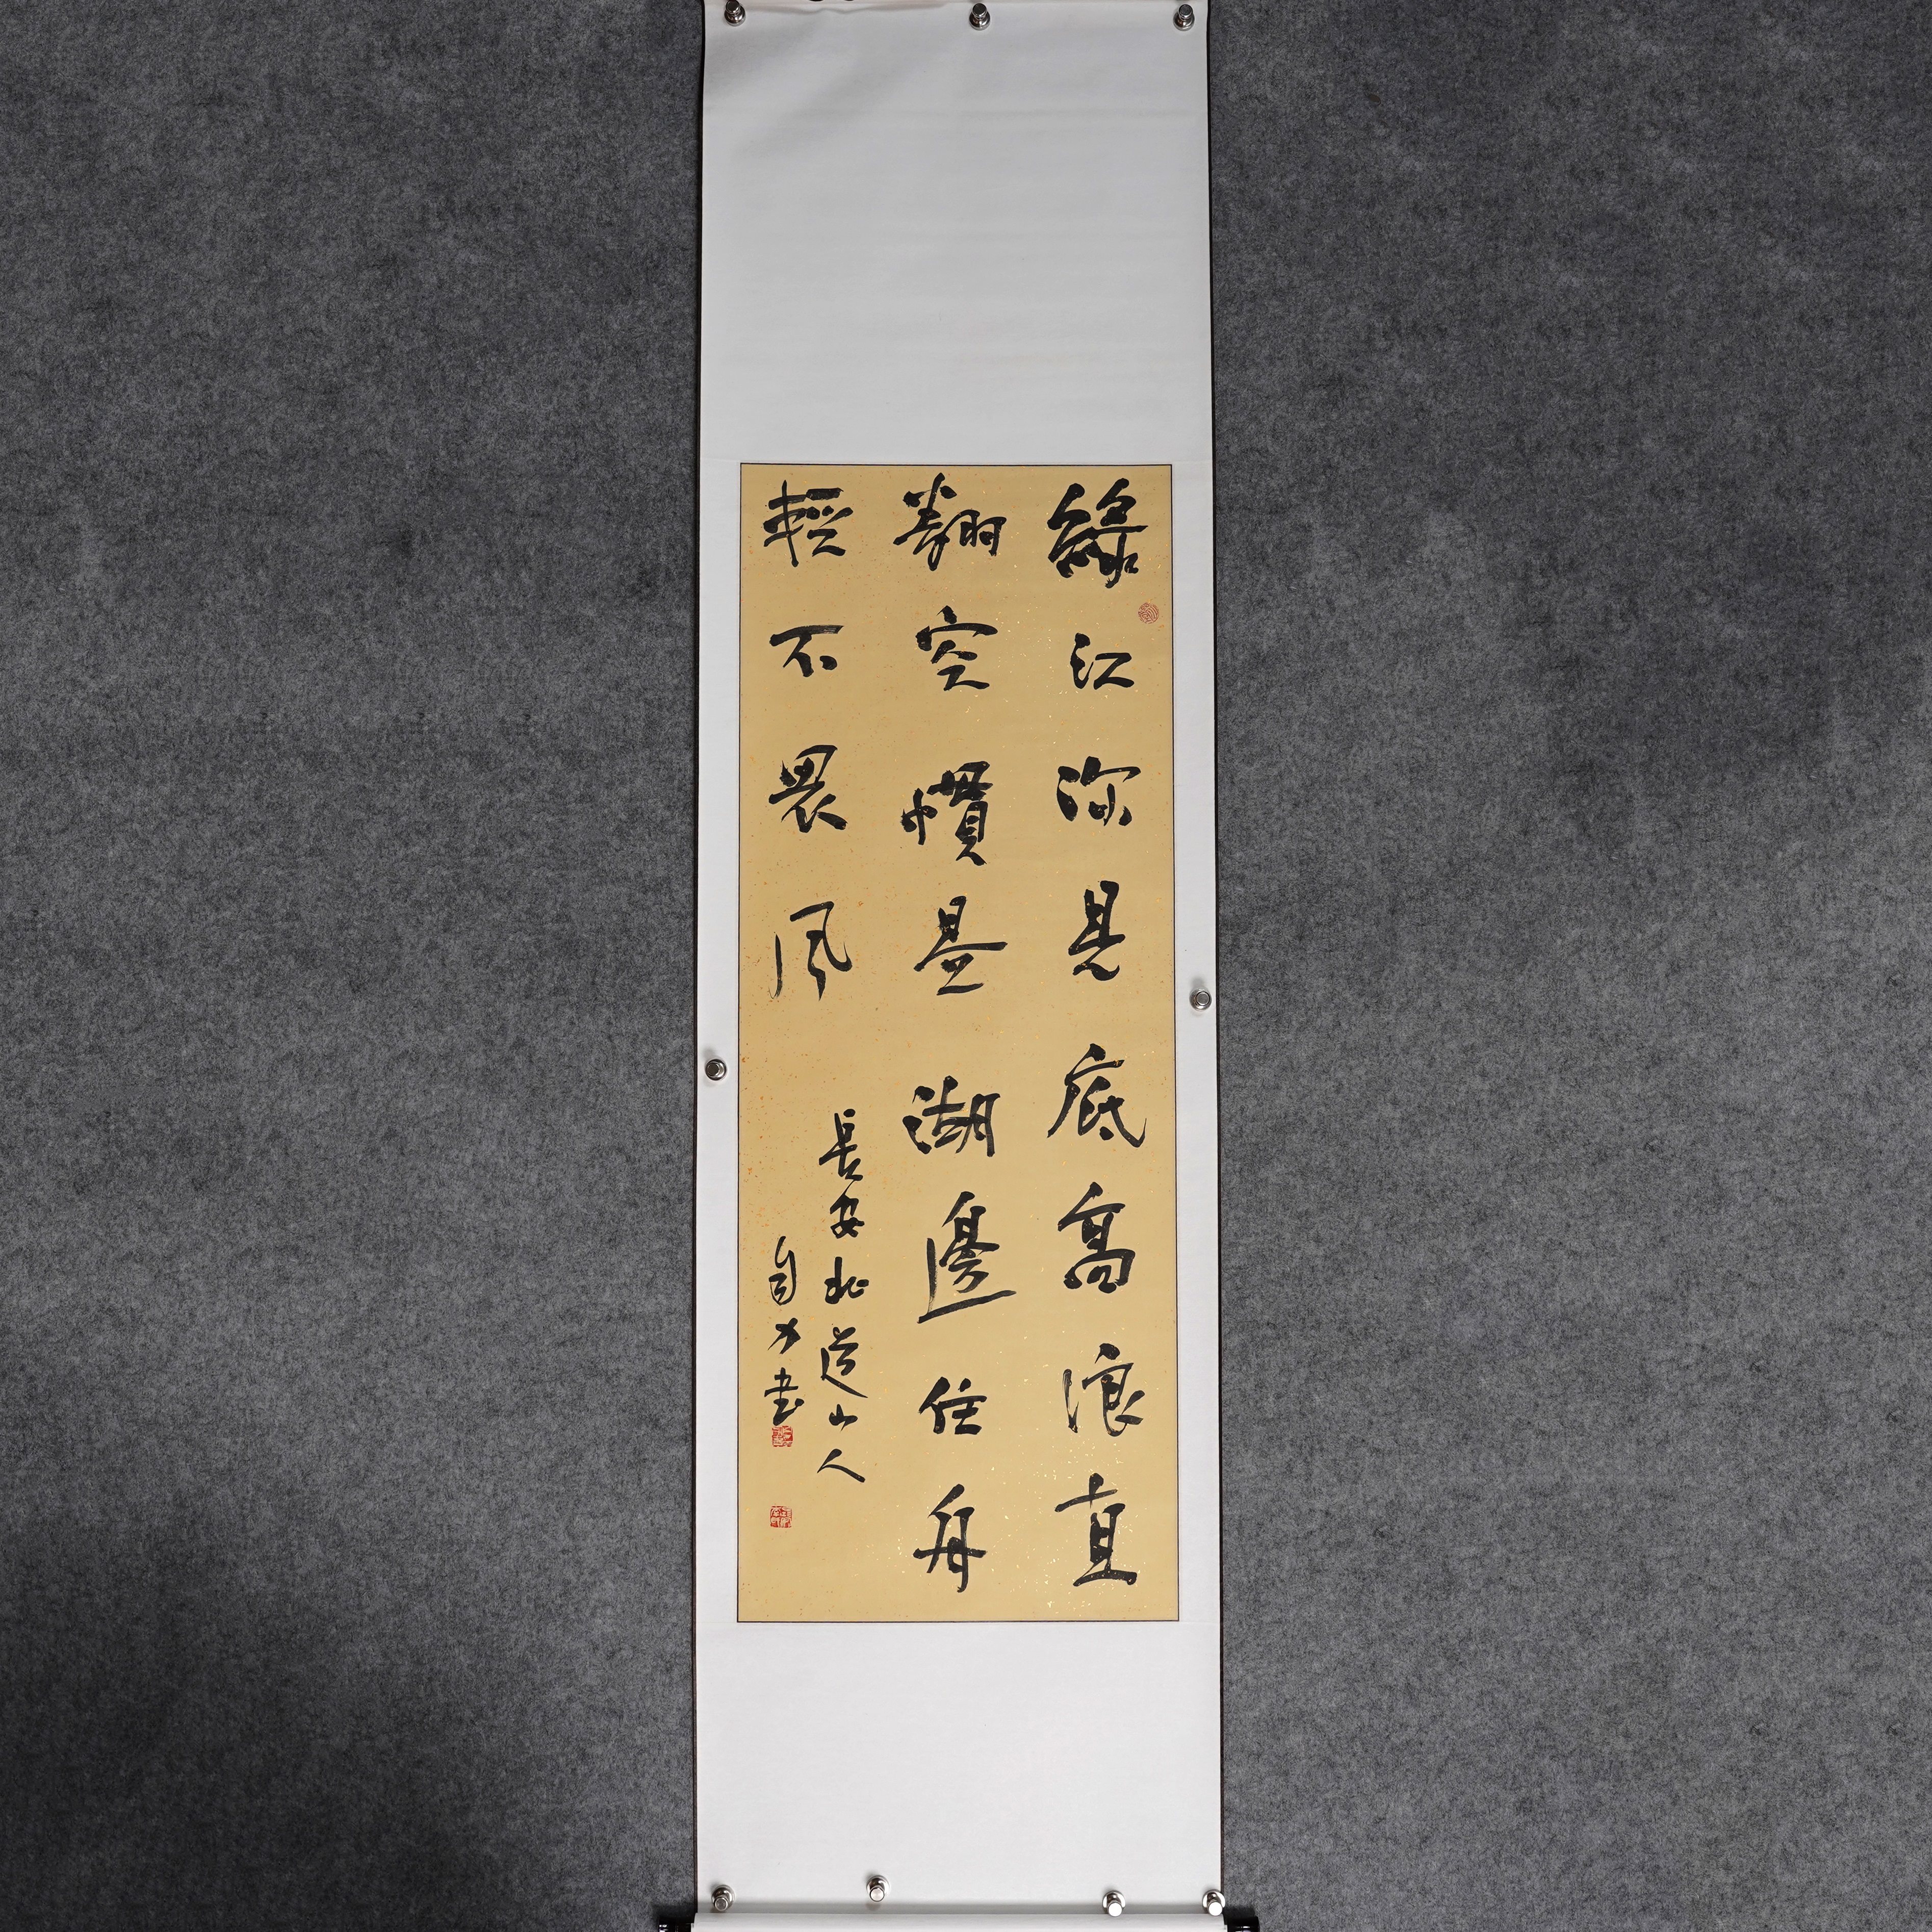 綠江深見底高浪直
翻空慣是湖邊住舟
輕不畏風
長安北道山人
自力書